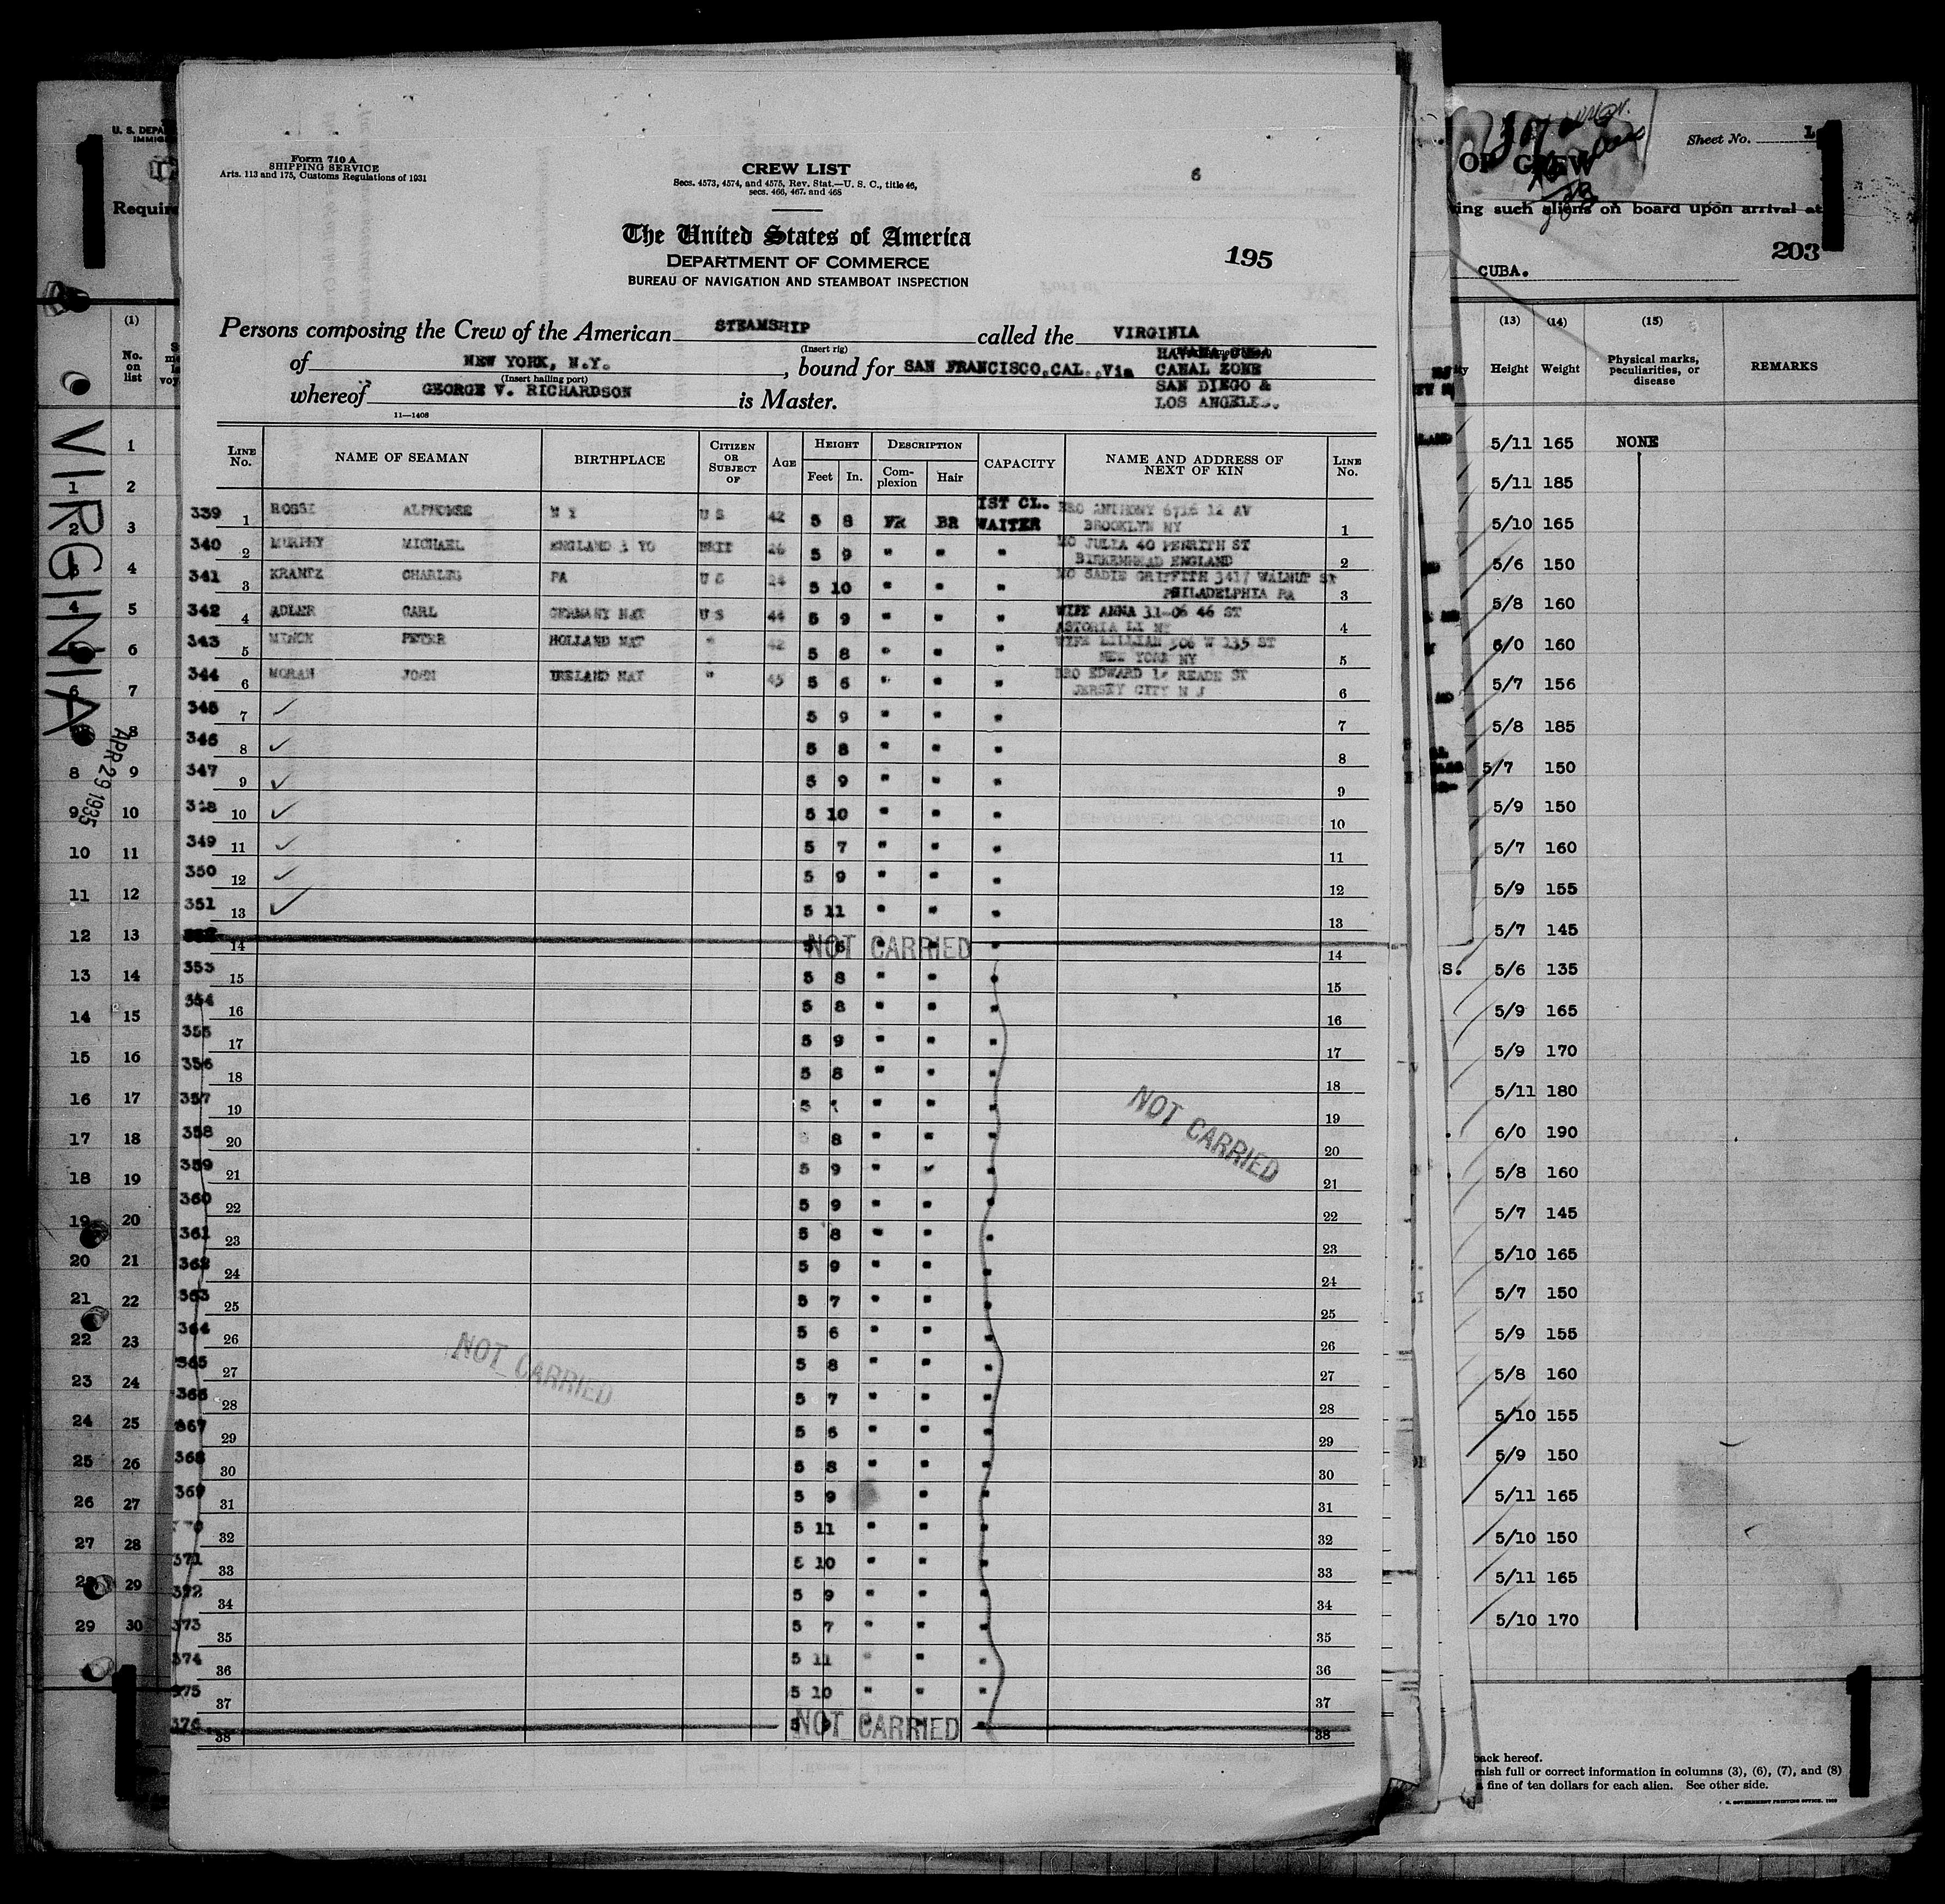 Form 710 A
SHIPPING SERVICE
Arts. 113 and 175, Customs Regulations of 1931
CREW LIST
Secs. 4573, 4574, and 4575, Rev. Stat.—U. S. C., title 46,
secs. 466, 467, and 468
6
The United States of America
DEPARTMENT OF COMMERCE
BUREAU OF NAVIGATION AND STEAMBOAT INSPECTION
195
Persons composing the Crew of the American STEAMSHIP called the VIRGINIA
(Insert rig)
of NEW YORK, N.Y. , bound for SAN FRANCISCO,CAL.,Via HAVANA,CUBA
CANAL ZONE
(Insert hailing port)
SAN DIEGO &
whereof GEORGE V. RICHARDSON is Master. LOS ANGELES.
11—1408
LINE No. NAME OF SEAMAN BIRTHPLACE CITIZEN OR SUBJECT OF AGE HEIGHT Feet In. DESCRIPTION Complexion Hair CAPACITY NAME AND ADDRESS OF NEXT OF KIN LINE No.
339 1 ROSSI ALPHONSE N Y U S 42 5 8 FR BR IST CL. WAITER BRO ANTHONY 6716 12 AV BROOKLYN NY 1
340 2 MURPHY MICHAEL ENGLAND 3 YO BRIT 26 5 9 " " " MO JULIA 40 PENRITH ST BIRKENHEAD ENGLAND 2
341 3 KRANTZ CHARLES PA U S 24 5 10 " " " MO SADIE GRIFFITH 3417 WALNUT ST PHILADELPHIA PA 3
342 4 ADLER CARL GERMANY NAT U S 44 5 9 " " " WIFE ANNA 31-06 46 ST ASTORIA LI NY 4
343 5 PETER HOLLAND NAT " 42 5 8 " " " WIFE LILLIAN 506 W 135 ST NEW YORK NY 5
344 6 MORAN JOHN IRELAND NAT " 45 5 6 " " " BRO EDWARD READE ST JERSEY CITY N J 6
345 7 ✓ 5 9 " " " 7
346 8 ✓ 5 8 " " " 8
347 9 ✓ 5 9 " " " 9
348 10 ✓ 5 10 " " " 10
349 11 ✓ 5 7 " " " 11
350 12 ✓ 5 9 " " " 12
351 13 ✓ 5 11 " " " 13
352 14 NOT CARRIED 14
353 15 5 8 " " " 15
354 16 5 8 " " " 16
355 17 5 9 " " " 17
356 18 5 8 " " " 18
357 19 5 " " " 19
358 20 8 " " " 20
NOT CARRIED
359 21 5 9 " " " 21
360 22 5 9 " " " 22
361 23 5 8 " " " 23
362 24 5 9 " " " 24
363 25 5 7 " " " 25
364 26 5 6 " " " 26
365 27 5 8 " " " 27
NOT CARRIED
366 28 5 7 " " " 28
367 29 5 6 " " " 29
368 30 5 8 " " " 30
369 31 5 9 " " 31
32 5 11 " " " 32
371 33 5 10 " " " 33
372 34 5 9 " " " 34
373 35 5 7 " " " 35
374 36 5 11 " " " 36
375 37 5 10 " " " 37
376 38 NOT CARRIED 38
U. S. DEPA
IMMIG
Require
(1)
No. on list
VIRGINIA
APR 29 1935
1
1 2
2 3
3 4
4 5
5 6
6 7
8
8 9
9 10
10 11
11 12
12 13
13 14
14 15
15 16
16 17
17 18
18 19
19 20
20 21
21 22
22 23
23 24
24 25
25 26
26 27
27 28
28 29
29 30
OF CREW
Sheet No. 1
ing such aliens on board upon arrival at
203
CUBA.
(13) (14) (15)
Height Weight Physical marks, peculiarities, or disease REMARKS
5/11 165 NONE
5/11 185
5/10 165
5/6 150
5/8 160
6/0 160
5/7 156
5/8 185
5/7 150
5/9 150
5/7 160
5/9 155
5/7 145
S. 5/6 135
5/9 165
5/9 170
5/11 180
6/0 190
5/8 160
5/7 145
5/10 165
5/7 150
5/9 155
5/8 160
5/10 155
5/9 150
5/11 165
5/10 150
5/11 165
5/10 170
back hereof.
nish full or correct information in columns (3), (6), (7), and (8)
a fine of ten dollars for each alien. See other side.
GOVERNMENT PRINTING OFFICE